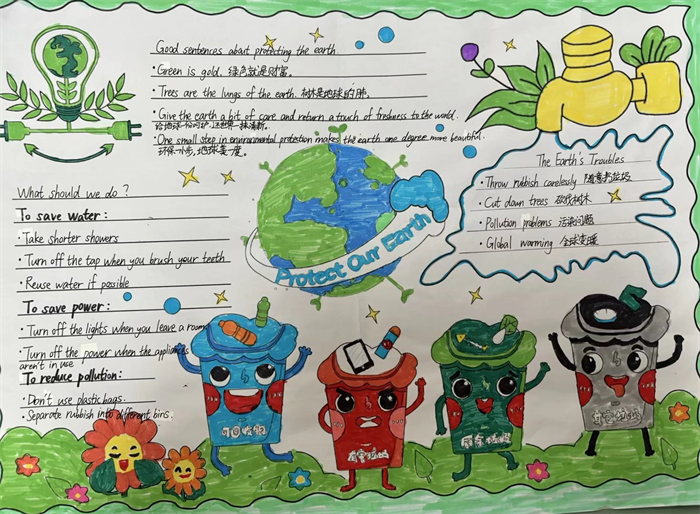 Good sentences about protecting the earth.
·Green is gold. 绿色就是财富。
·Trees are the lungs of the earth. 树林是地球的肺。
·Give the earth a bit of care and return a touch of freshness to the world.
给地球一份呵护,还世界一抹清新。
·One small step in environmental protection makes the earth one degree more beautiful.
环保一小步,地球美一度。
The Earth's Troubles
·Throw rubbish carelessly 随意扔垃圾
·Cut down trees 砍伐树木
·Pollution problems 污染问题
·Global warming 全球变暖
What should we do?
To save water:
·Take shorter showers
·Turn off the tap when you brush your teeth
·Reuse water if possible
To save power:
·Turn off the lights when you leave a room
·Turn off the power when the appliances
aren't in use
To reduce pollution:
·Don't use plastic bags.
·Separate rubbish into different bins.
Protect Our Earth
可回收物
有害垃圾